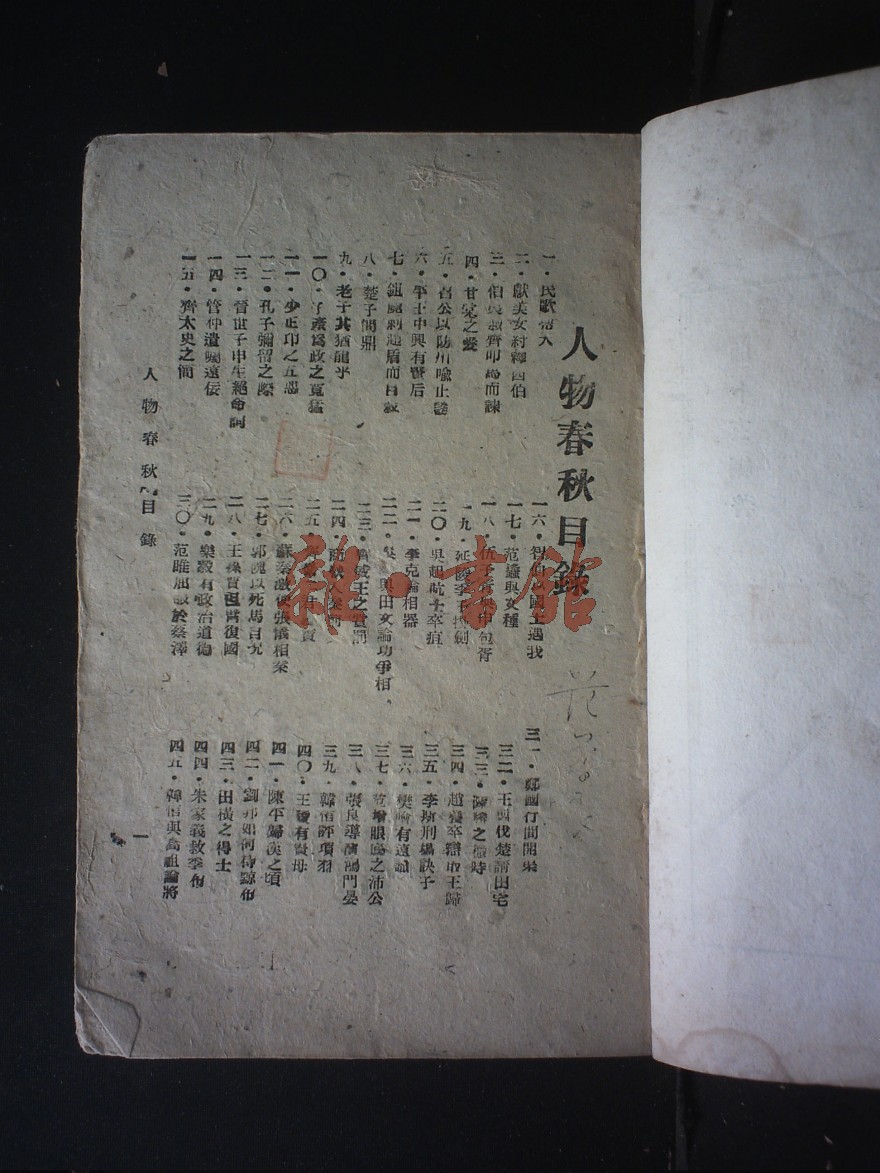 人物春秋目錄
一・民歌
二・獻美女紂釋西伯
三・伯夷叔齊叩馬而諫
四・甘棠之愛
五・召公以防川喻止謗
六・中興有賢后
七・鉏麑刺趙盾而自殺
八・楚子問鼎
九・老子其猶龍乎
一〇・子產爲政之寬猛
一一・少正卯之五惡
一二・孔子彌留之際
一三・晉世子申生絕命詞
一四・管仲遺囑遠佞
一五・齊太史之簡
一六・智伯國士遇我
一七・范蠡與文種
一八・伍子胥申包胥
一九・延陵季子劍
二〇・吳起吮士卒疽
二一・李克論相器
二二・吳起與田文論功爭相
二三・齊威王之賞罰
二四・商鞅
二五・
二六・蘇秦激使張儀相秦
二七・郭隗以死馬自況
二八・王孫賈袒臂復國
二九・樂毅有政治道德
三〇・范雎屈服於蔡澤
三一・鄭國行間開渠
三二・王翦伐楚請田宅
三三・之時
三四・趙養卒辯取王歸
三五・李斯刑場訣子
三六・樊噲有遠識
三七・范增眼底之沛公
三八・張良導演鴻門宴
三九・韓信評項羽
四〇・王陵有賢母
四一・陳平歸漢之頃
四二・劉邦如何待黥布
四三・田橫之得士
四四・朱家義救季布
四五・韓信與高祖論將
人物春秋　目錄
一
雜・書館